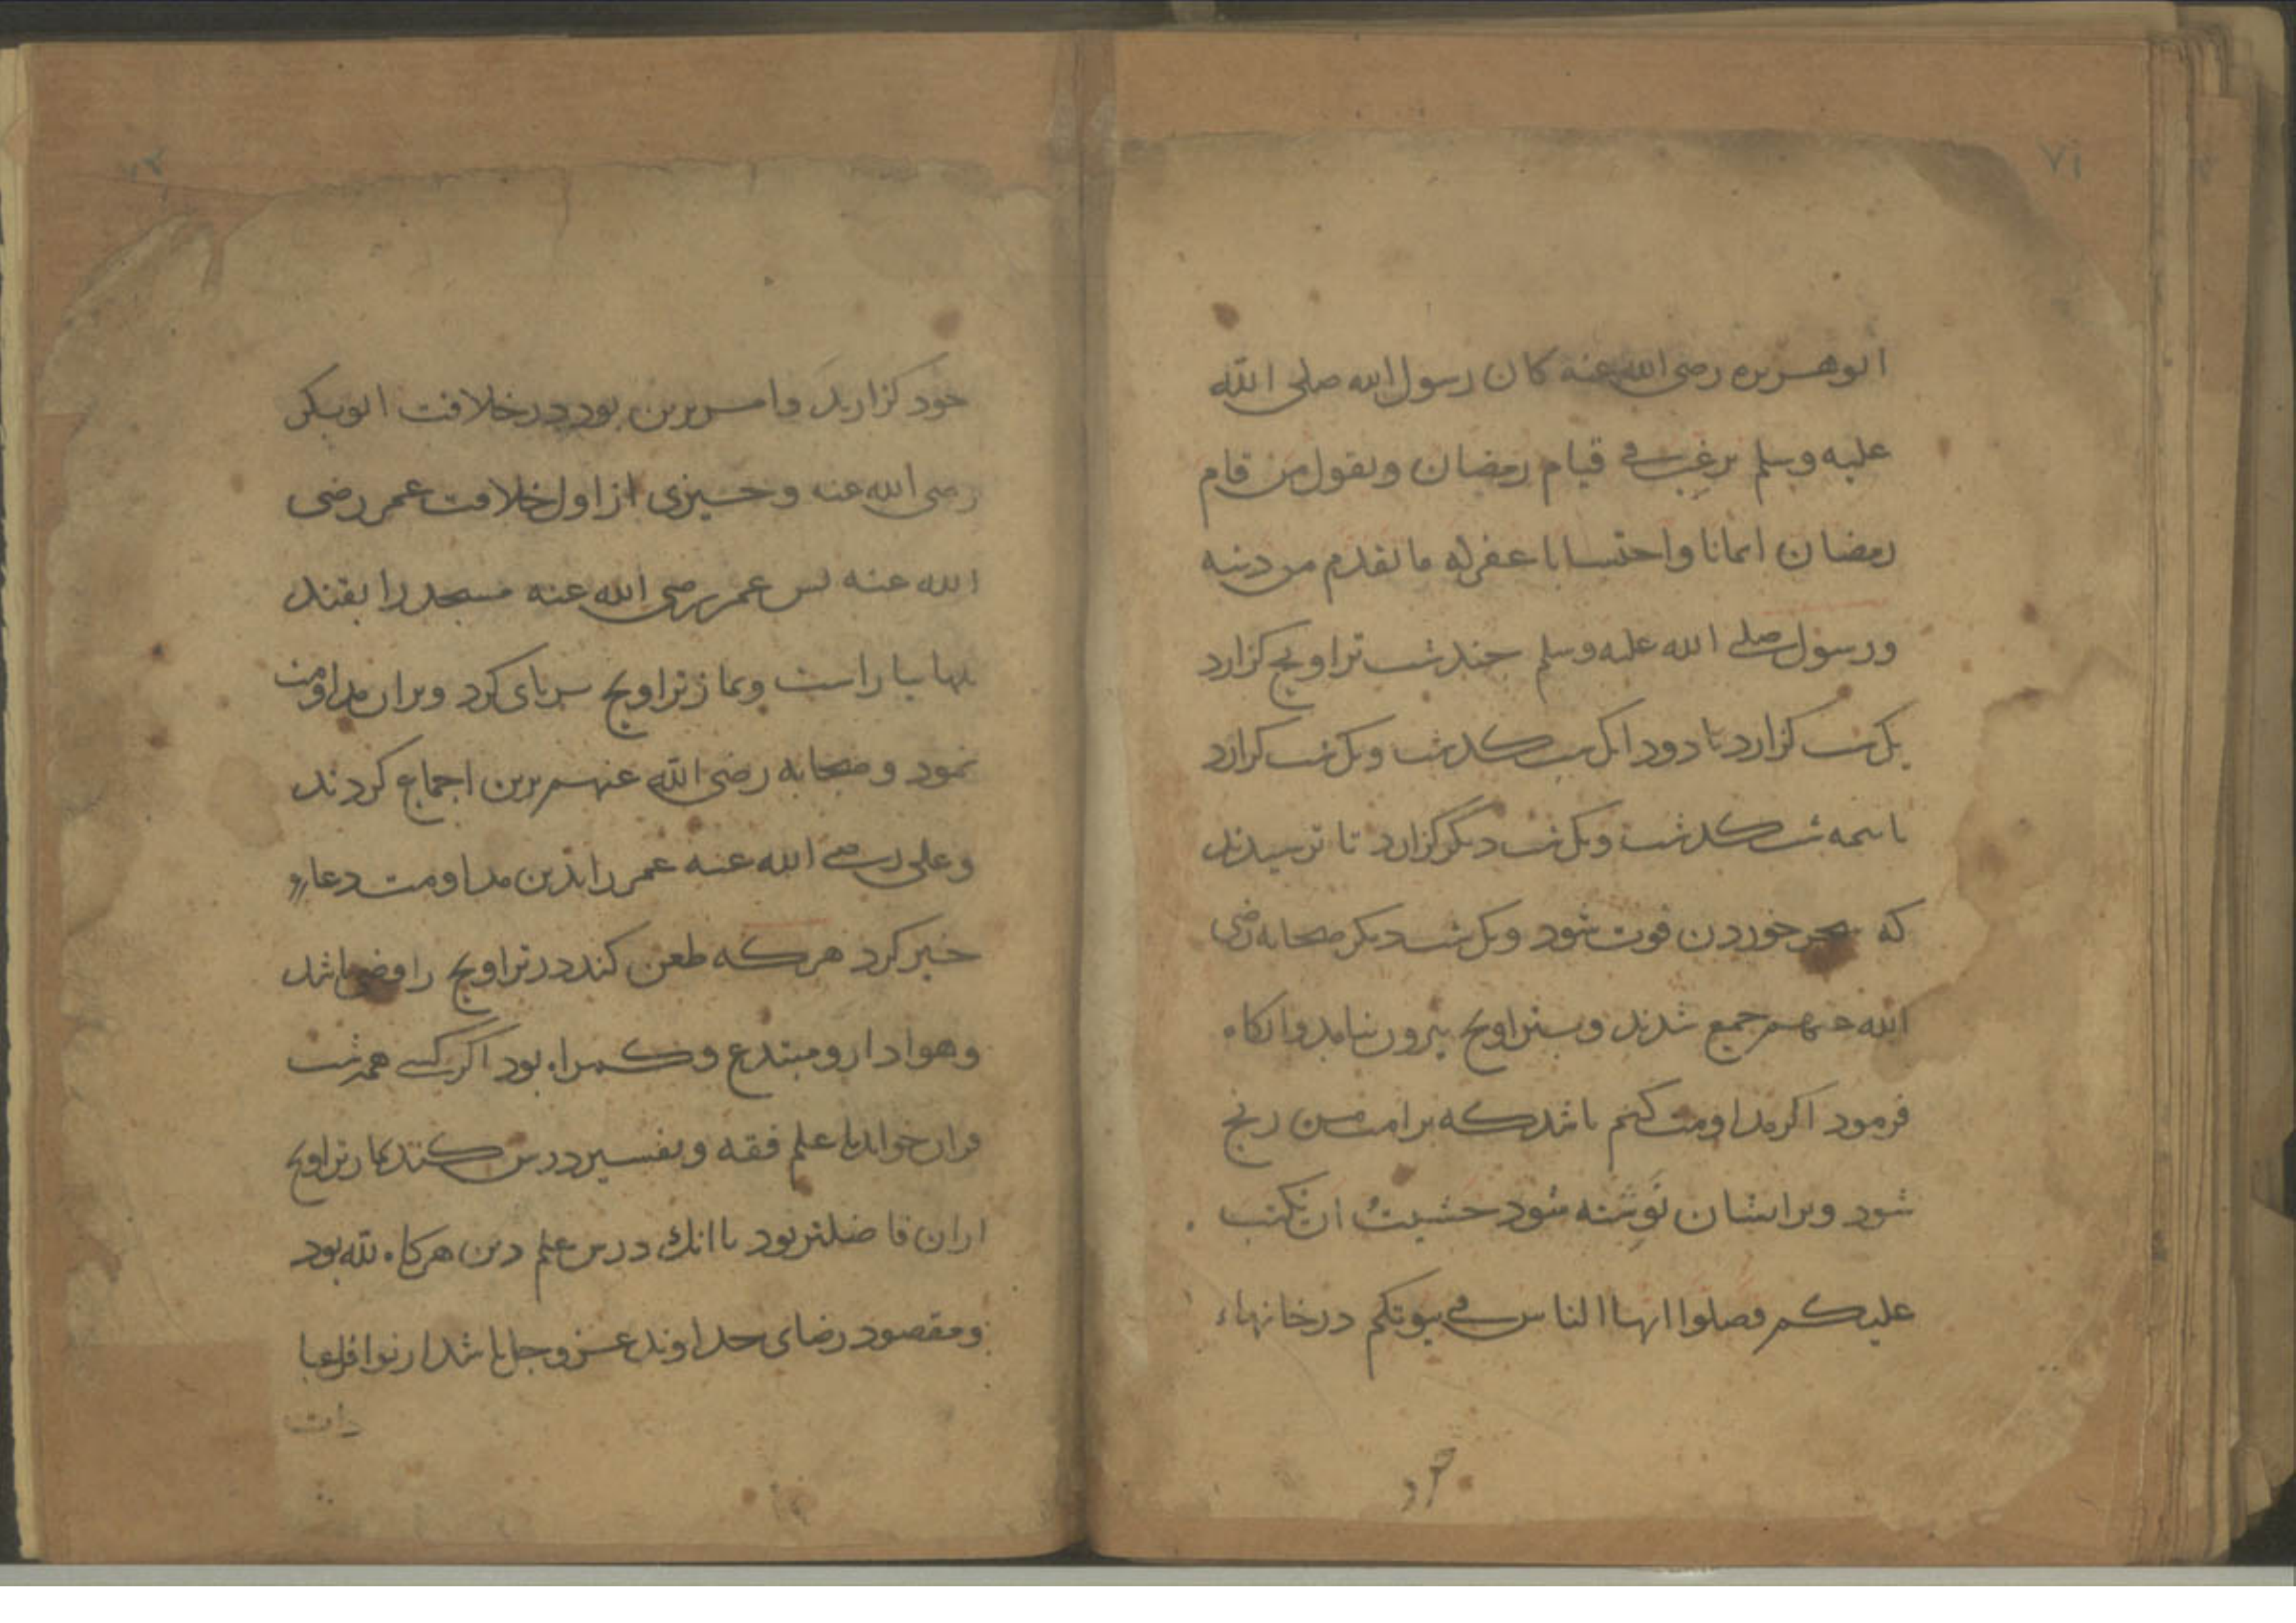 ۷۱
ابوهریره رضی الله عنه كان رسول الله صلی الله
علیه وسلم یرغب فی قیام رمضان ویقول من قام
رمضان ایمانا واحتسابا غفر له ما تقدم من ذنبه
ورسول صلی الله علیه وسلم چند شب تراویح گزارد
یک شب گزارد تا دودانگ شب گذشت ویک شب گزارد
تا نیمه شب گذشت ویک شب دیگر گزارد تا ترسیدند
که سحر خوردن فوت شود ویک شب دیگر صحابه رضی
الله عنهم جمع شدند وبتراویح بیرون نیامد وانگاه
فرمود اگر مداومت کنم باشد که بر امت من رنج
شود وبرایشان نوشته شود خشیت ان یکتب
علیکم فصلوا ایها الناس فی بیوتکم در خانهاء
خود
۷۲
خود گزارید وامر برین بود در خلافت ابوبکر
رضی الله عنه وچیزی از اول خلافت عمر رضی
الله عنه پس عمر رضی الله عنه مسجد را بقند
یلها بیاراست ونماز تراویح برپای کرد وبران مداومت
نمود وصحابه رضی الله عنهم برین اجماع کردند
وعلی رضی الله عنه عمر را بذین مداومت دعاء
خیر کرد هر که طعن کند در تراویح رافضی باشد
وهوادار ومبتدع وگمراه بود اگر کسی همه شب
قران خواند یا علم فقه وتفسیر درس کند نماز تراویح
ازان فاضلتر بود باانك درس علم دین هرگاه لله بود
ومقصود رضای خداوند عز وجل باشد از نوافل عبا
دات